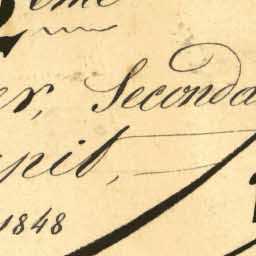 2eme
er, Seconda
pit,
1848